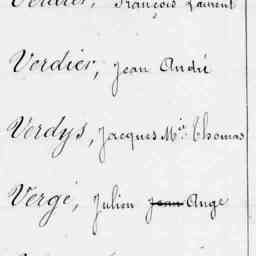 Verdier, François Laurent
Verdier, Jean André
Verdys, Jacques Mie Thomas
Vergé, Julien Jean Ange